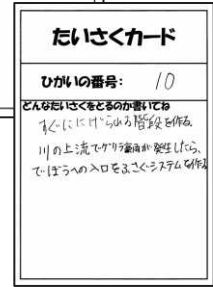 たいさくカード
ひがいの番号: 10
どんなたいさくをとるのか書いてね
すぐににげられる階段を作る
川の上流でゲリラ豪雨が発生したら、
でぼうへの入口をふさぐシステムを作る